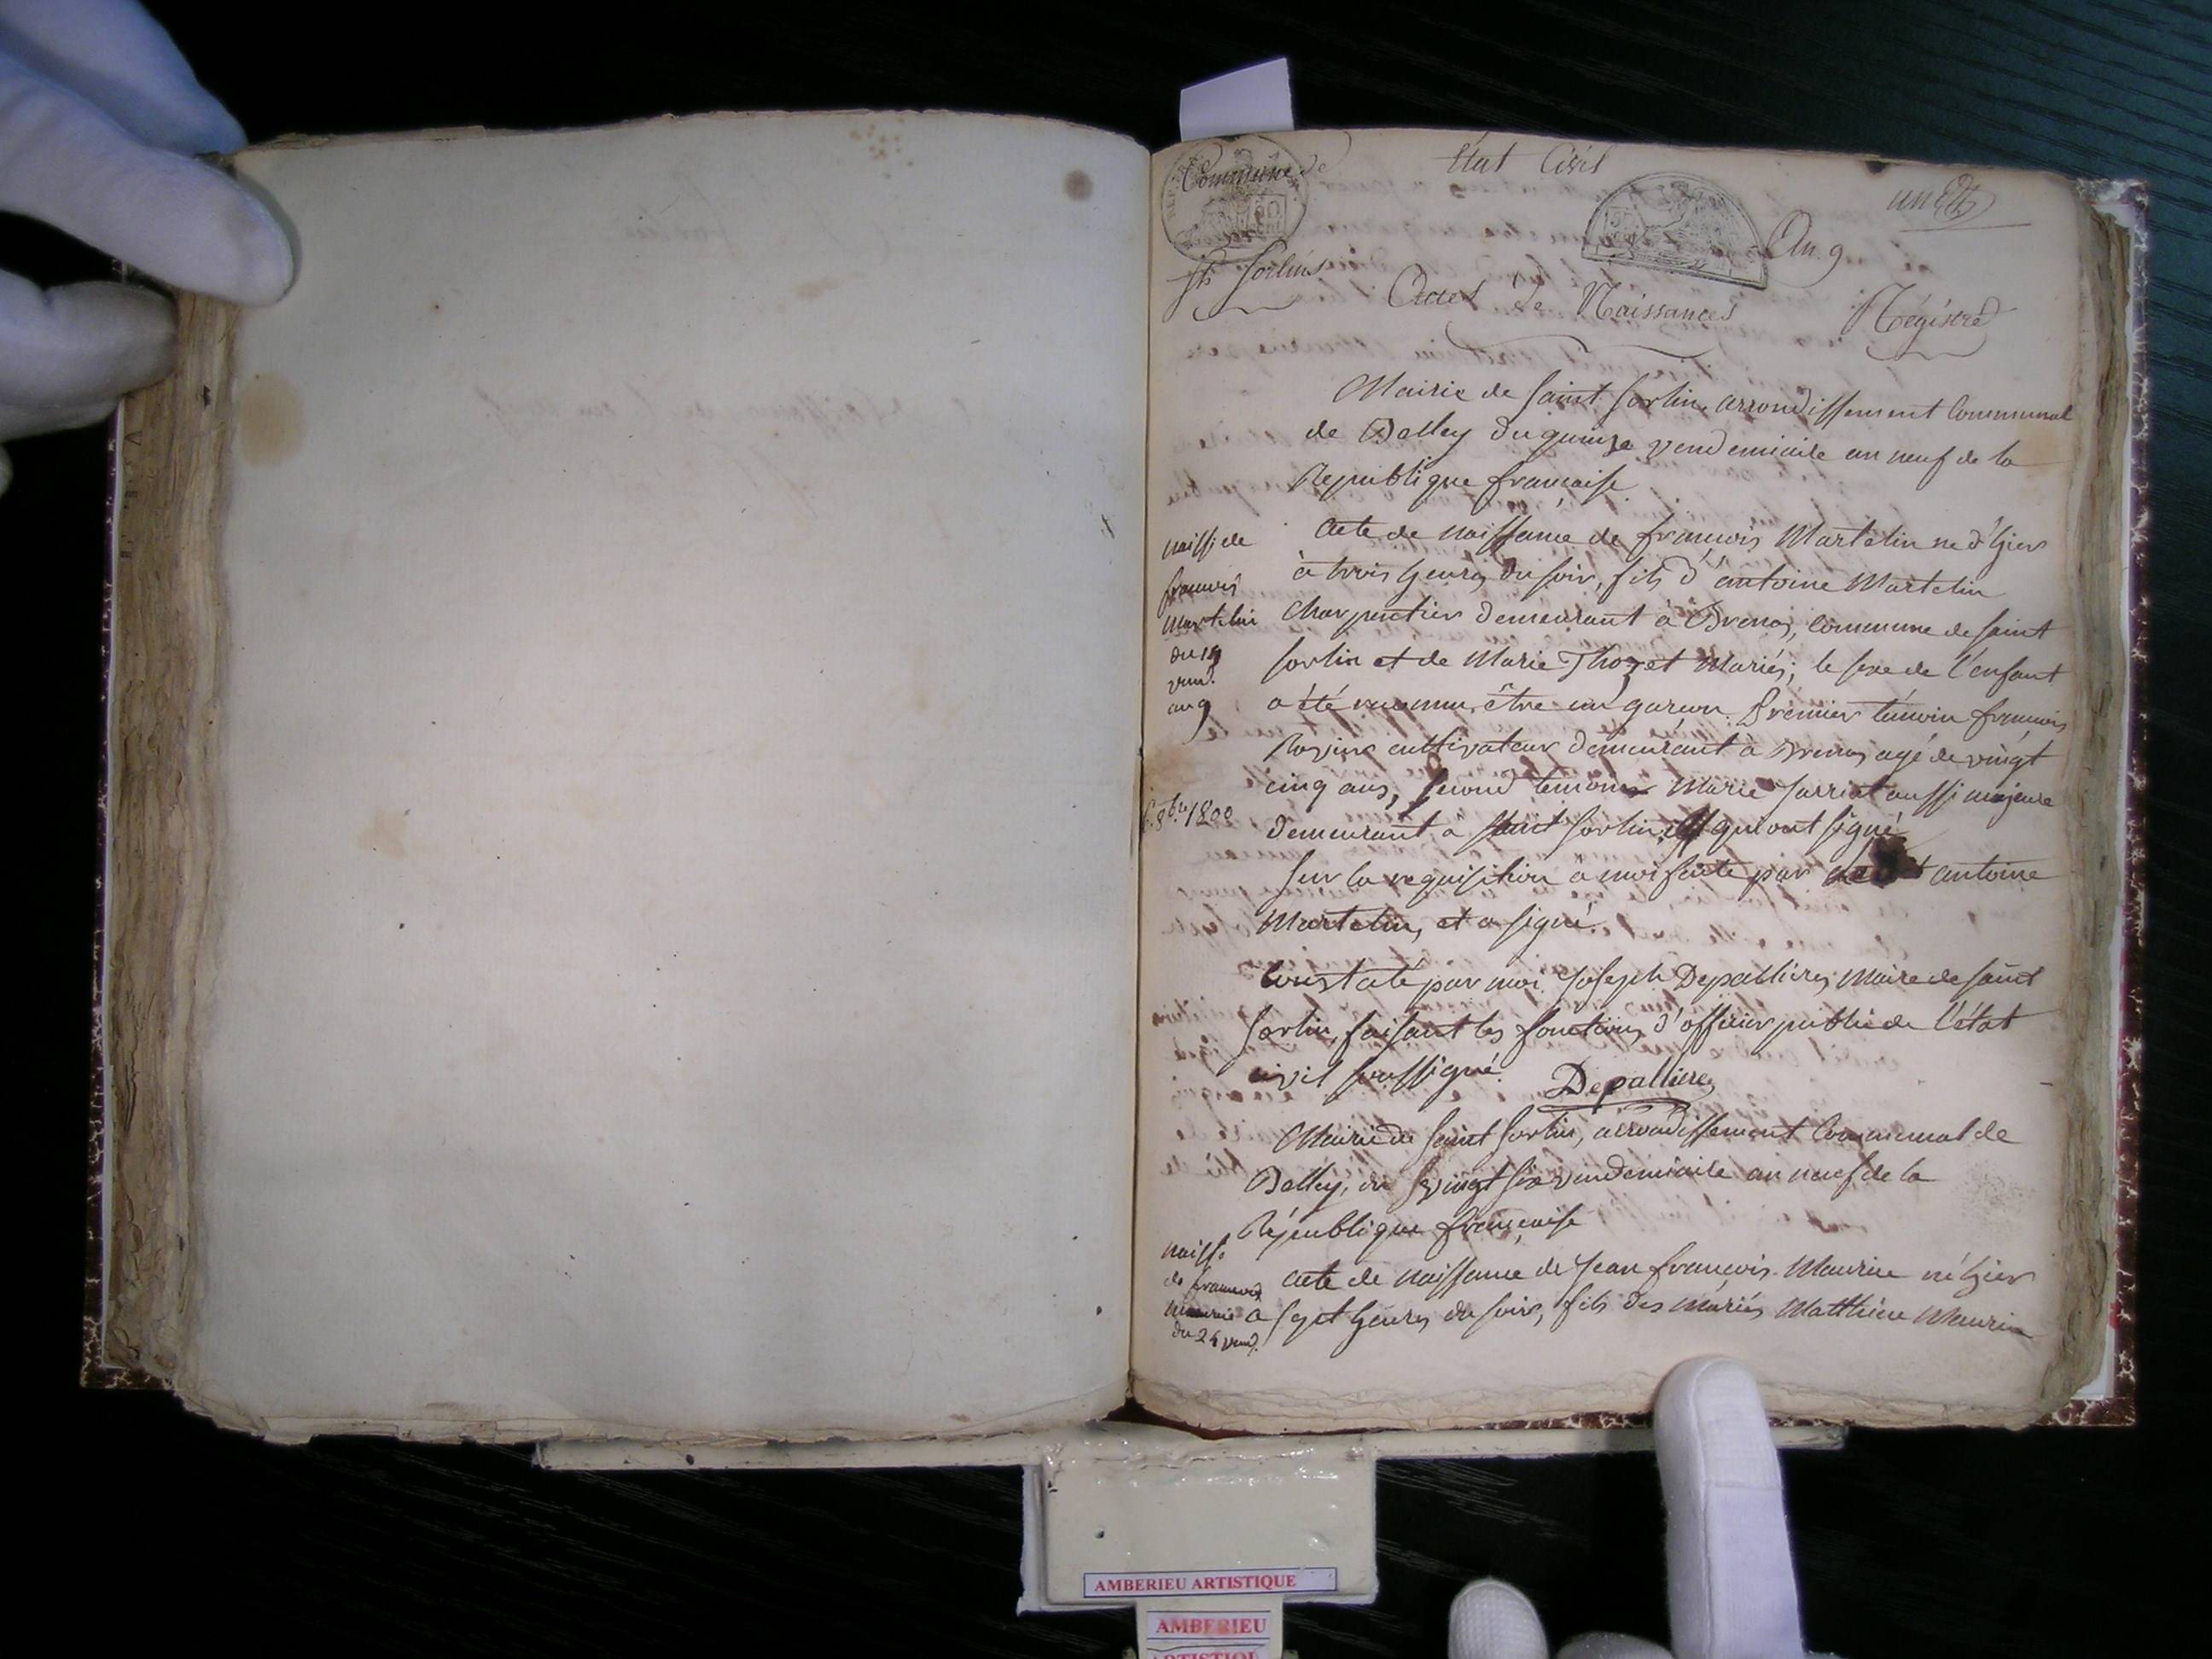 Commune de
Etat Civil
An 9
St Sorlin
Actes de Naissances
Régistre
Mairie de saint Sorlin, arrondissement Communal
de Belley du quinze vendemiaire an neuf de la
Republique francaise
naisse de
francois
Martelin
vend.
an 9
acte de naissance de françois Martelin né d'hjer
à trois heures du soir, fils d'antoine Martelin
charpentier demeurant à Brenoz, Commune de saint
sorlin et de Marie Thozet Mariés; le sexe de l'enfant
a été reconnu être un garçon. Premier témoin francois
cultivateur demeurant à Brenoz agé de vingt
cinq ans, second temoin Marie Sarriat aussi majeure
8bre 1800
demeurant à saint sorlin qui ont signé
sur la requisition à moi faite par antoine
Martelin, et a signé.
Constaté par moi Joseph Depallieres, Maire de saint
sorlin, faisant les fonctions d'officier public de l'état
civil soussigné.
Depallieres
Mairie de saint sorlin, arrondissement Communal de
Belley, du vingt six vendemiaire an neuf de la
République françoise
naiss.
de francois
Maurin
du 26 vend.
acte de naissance de Jean françois Maurin né hjer
a sept heures du soir, fils des mariés Matthieu Maurin
AMBERIEU ARTISTIQUE
AMBERIEU
ARTISTIQUE